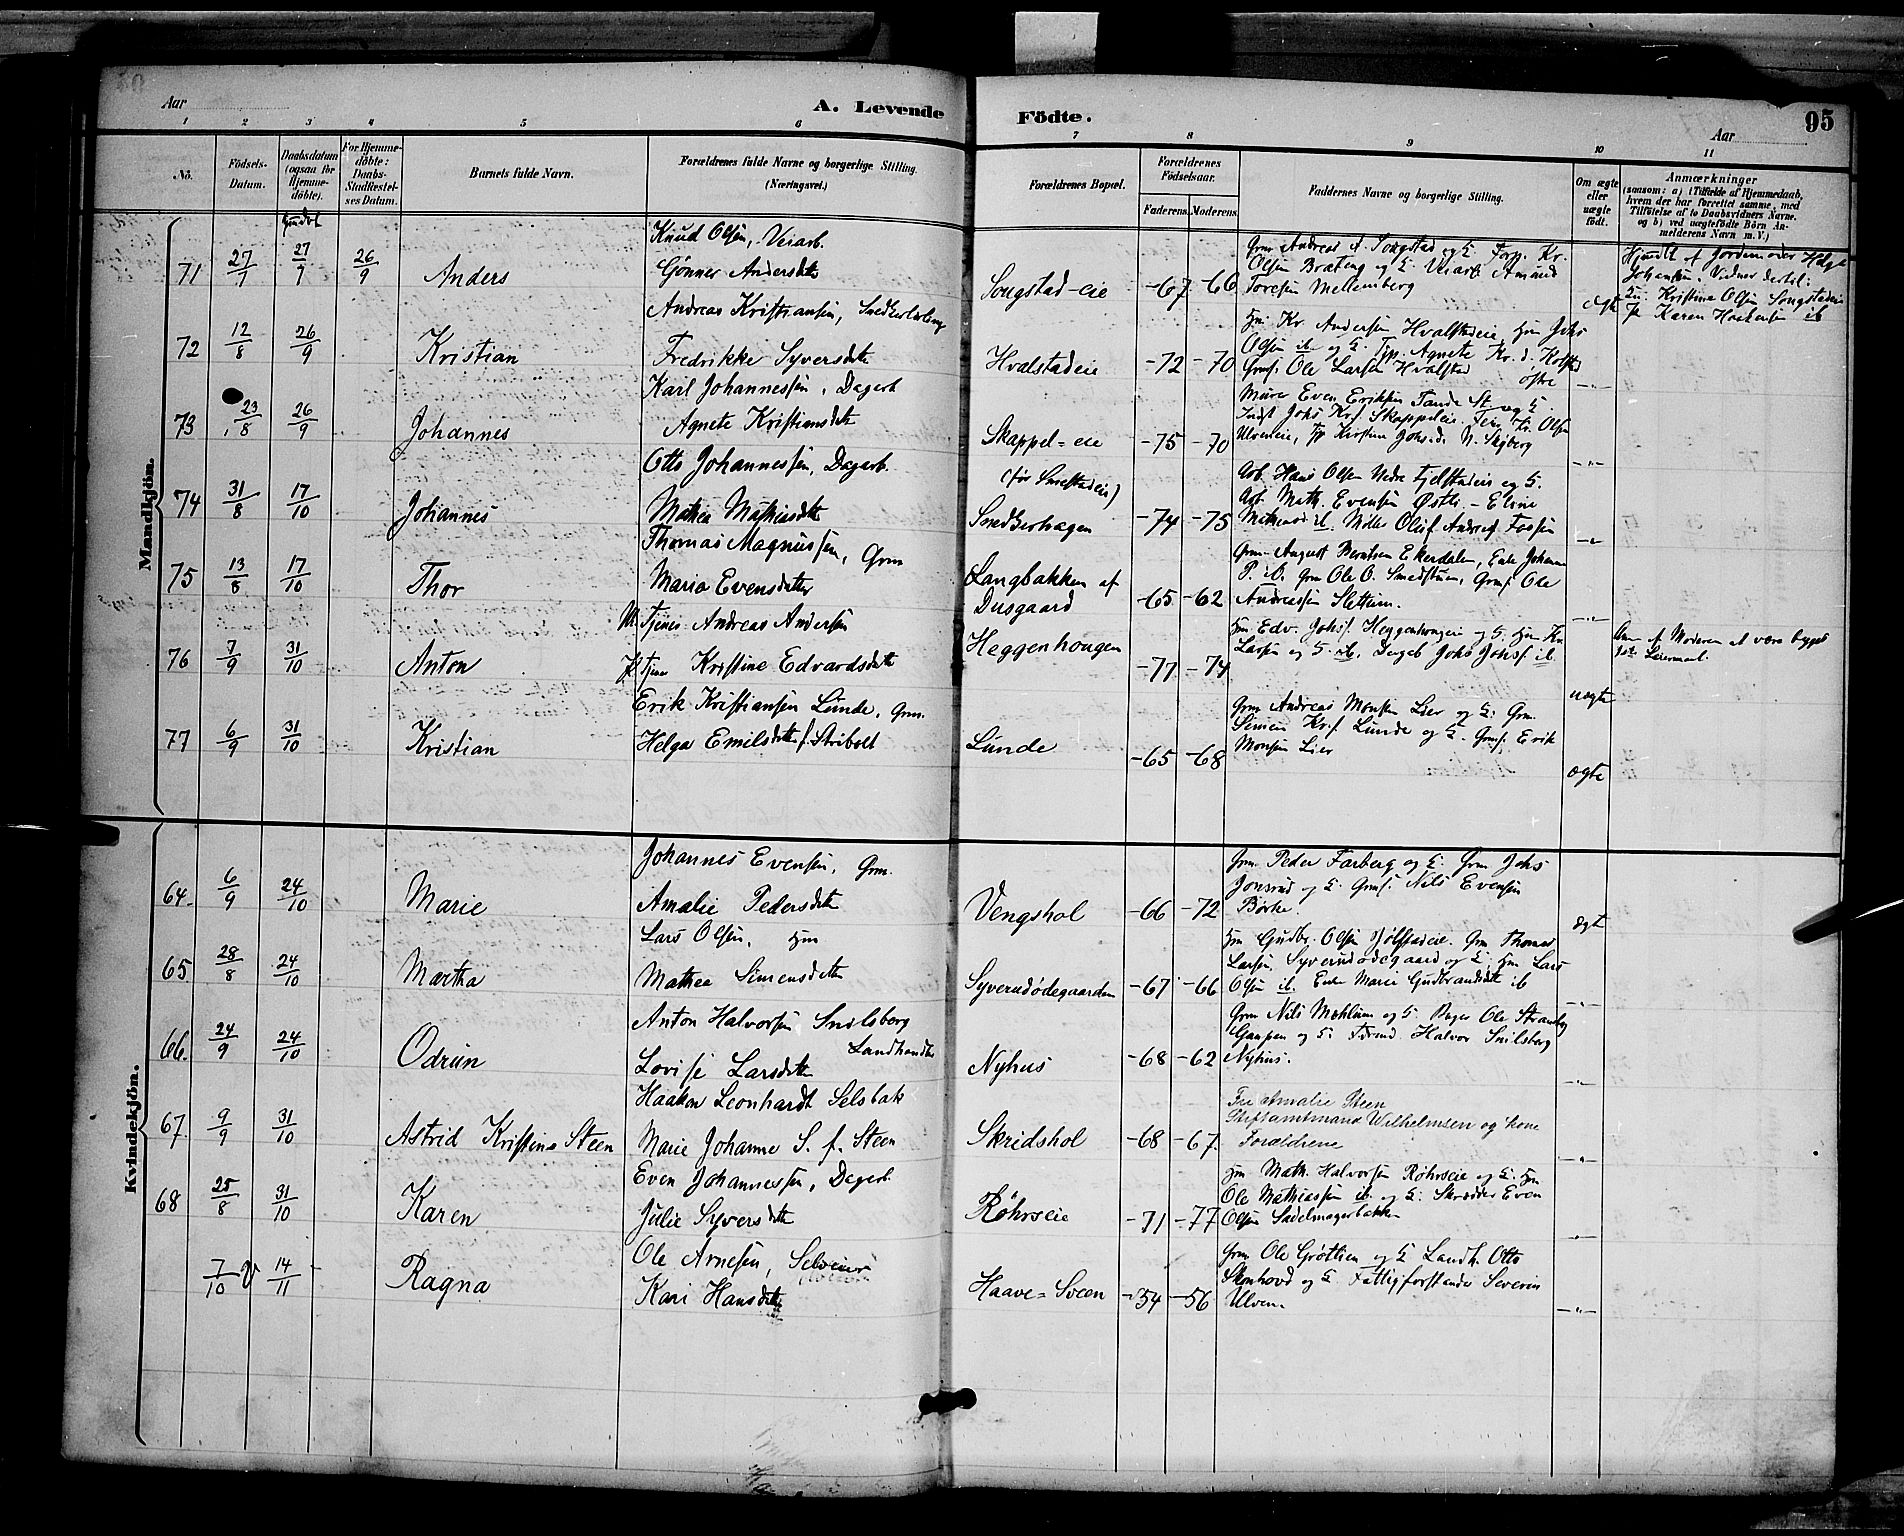 Aar
A. Levende
Födte.
Aar
95
1 2 3 4 5 6 7 8 9 10 11
No.
Födsels-Datum.
Daabsdatum (ogsaa for Hjemme-döbte).
For Hjemme-döbte: Daabs-Stadfæstel-ses Datum.
Barnets fulde Navn.
Forældrenes fulde Navne og borgerlige Stilling. (Næringsvei.)
Forældrenes Bopæl.
Forældrenes Födselsaar.
Faderens. Moderens.
Faddernes Navne og borgerlige Stilling.
Om ægte eller uægte födt.
Anmærkninger
(saasom: a) i Tilfælde af Hjemmedaab, hvem der har forrettet samme, med Tilföielse af to Daabsvidners Navne. og b) ved uægtefödte Börn An-melderens Navn m. V.)
Mandkjön.
71 27/7 27/7 26/9 Anders
Knud Olsen, Veiarb.
Gjønner Andersdtr
Songstad-eie -67 -66
Grm Andreas A. Songstad og H. Forp. Kr.
Olsen Bråteng og H. Veiarb Amund
Toresen Mellemberg
ægte
Hjmdbt af Jordemoder Helga
Johansen, Vidner dertil:
Kristine Olsen Songstadeie
Karen Haakensen ib
72 12/8 26/9 Kristian
Andreas Kristiansen, Snedkerlærling
Fredrikke Syversdtr
Hvalstadeie -72 -70
Hm Kr. Andersen Hvalstadeie, Hm Johs
Olsen ib og H. Tjp. Agnete Kr. d. Kolstad
Grms. Ole Larsen Hvalstad østre
-"-
73 23/8 26/9 Johannes
Karl Johannessen, Dagarb
Agnete Kristiansdtr
Skappel-eie -75 -70
Murer Even Eriksen Tande St. og H
Indst Johs Kr. Skappeleie, Kr. Olsen
Ulveneie, Tjp Kirstine Johs.d. N. Skjberg
-"-
74 31/8 17/10 Johannes
Otto Johannessen, Dagarb.
Mathea Mathiasdtr
(før Smestadeie)
Snedkerhagen -74 -75
Arb. Hans Olsen Nedre Fjelstadeie og H.
Arb. Math. Evensen Østli - Eline
ib. Møller Oluf Andreas Fossen
-"-
75 13/8 17/10 Thor
Thomas Magnussen, Grm
Maria Evensdatter
Langbakken af
Dusgaard -65 -62
Grm August Berntsen Ekerdalen, Enke Johanne
P. ib. Grm Ole O. Smedstuen, Grms. Ole
Andreassen Slettum.
-"-
76 7/9 31/10 Anton
U. Tjener Andreas Andersen
P. Tjener Kristine Edvardsdtr
Heggenhougen -77 -74
Hm Edv. Johs. Heggenhougeie og H. Hm Kr.
Larsen og H. ib. Dagarb Johs Johs. ib
uægte
Anm. af Moderen at være begges
1ste Leiermaal.
77 6/9 31/10 Kristian
Erik Kristiansen Lunde, Grm.
Helga Emilsdtr f. Stribolt
Lunde -65 -68
Grm Andreas Monsen Lier og H. Grm.
Simen Kr. Lunde og H. Grms. Erik
Monsen Lier
ægte
Kvindekjön.
64. 6/9 24/10 Marie
Johannes Evensen, Grm.
Amalie Pedersdtr
Vengshol -66 -72
Grm. Peder Farberg og H. Grm Johs
Jonsrud og H. Grms. Nils Evensen
Børke.
ægt
65. 28/8 24/10 Martha
Lars Olsen, Hm
Mathea Simensdtr
Syverudødegaarden -67 -66
Hm Gudbr. Olsen Jølstadeie. Grm Thomas
Larsen Syverudødegaard og H. Hm Lars
Olsen ib. Enke Marie Gudbrandsdtr ib
-"-
66. 24/9 24/10 Odrun
Anton Halvorsen Snilsberg
Landhandler
Lovise Larsdtr
Nyhus -68 -62
Grm Nils Mæhlum og H. Bager Ole Strandby
Gaupen og H. Halvor Snilsberg
Nyhus.
-"-
67. 9/9 31/10 Astrid Kristina Steen
Haakon Leonhardt Selsbak
Marie Johanne S. f. Steen
Skridshol -68 -67.
Fru Amalie Steen
Stiftamtmand Wilhelmsen og Kone
Forældrene
-"-
68 25/8 31/10 Karen
Even Johannessen, Dagarb.
Julie Syversdtr
Røhrseie -71 -77
Hm Math. Halvorsen Røhrseie og H. Hm
Ole Mathiassen ib og H. Skrædder Even
Olsen Sadelmagerbakken
-"-
7/10 V 14/11 Ragna
Ole Arnesen, Selveier
Kari Hansdtr
Haave-Sveen -54 -56
Grm Ole Grøtlien og H Landh. Otto
Skonhovd og H. Fattigforstander Severin
Ulven.
-"-